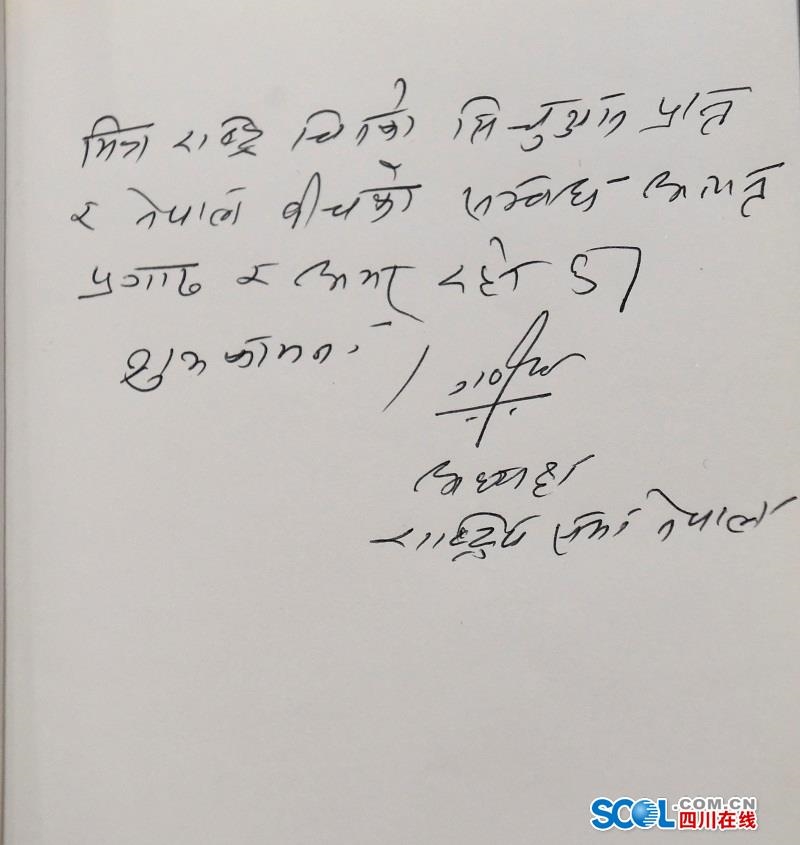 मित्र राष्ट्र चिनको सिचुआन प्रान्त
र नेपाल बीचको सम्वन्ध अत्यन्त
प्रगाढ र अमर रहोस्
शुभकामना ।
अध्यक्ष
राष्ट्रिय सभा नेपाल
SCOL.COM.CN
四川在线